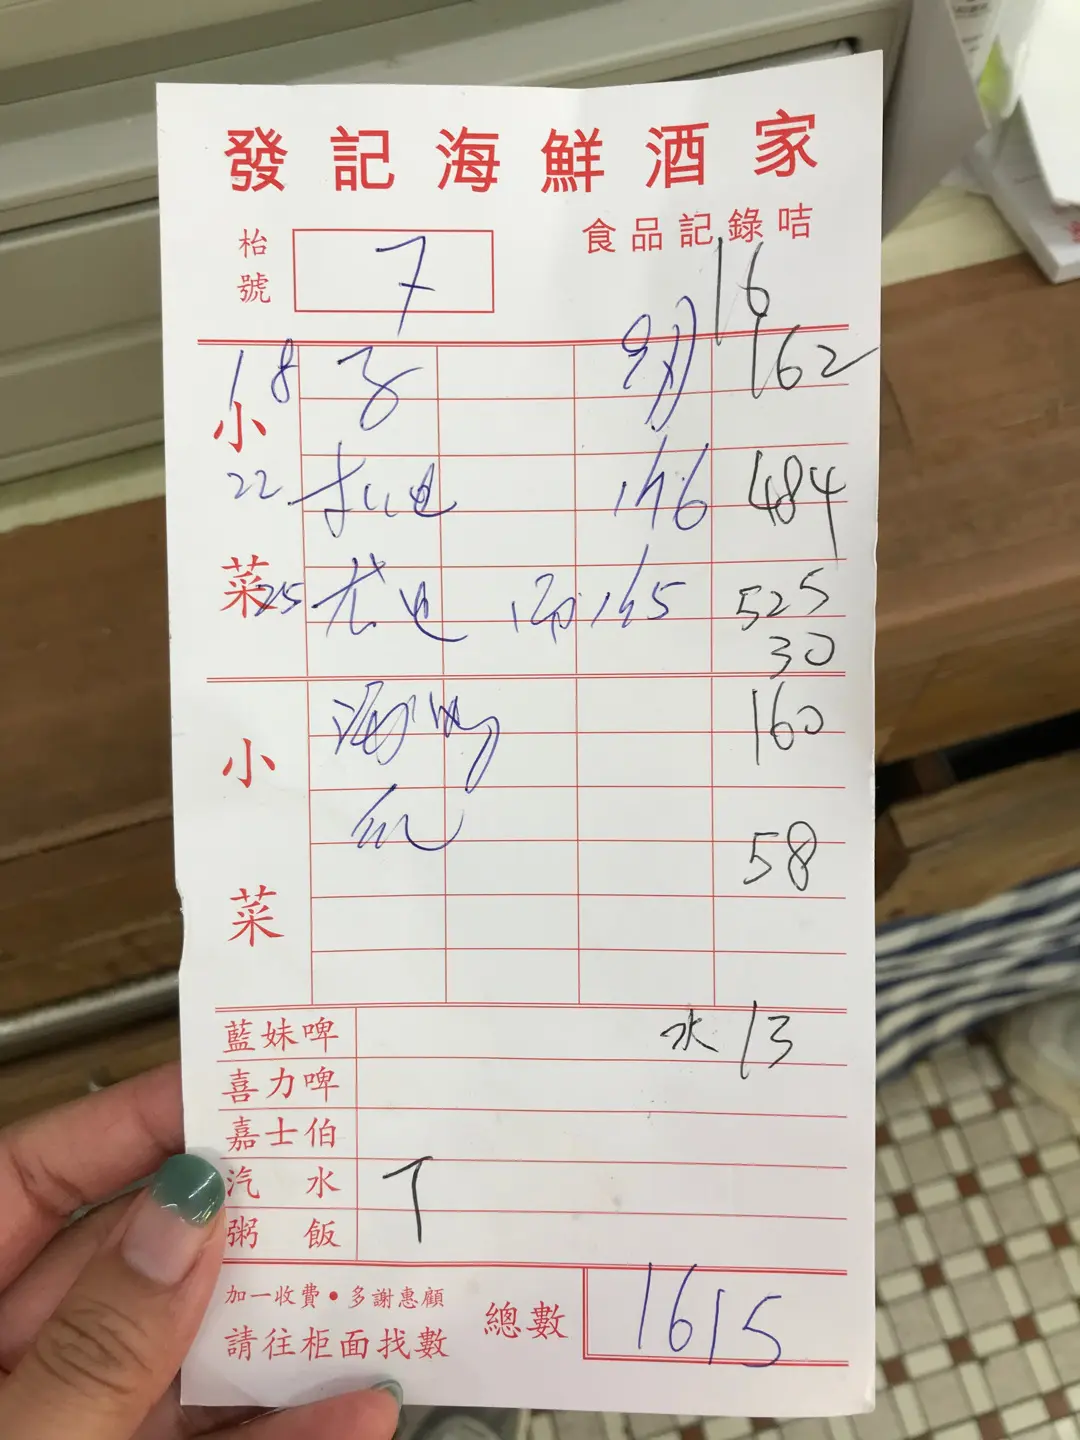 發記海鮮酒家
食品記錄咭
枱號 7
16
162
小菜
18
22 146 484
25 165 525
30
小菜
160
58
藍妹啤 水 13
喜力啤
嘉士伯
汽水
粥飯
加一收費•多謝惠顧
請往柜面找數
總數 1615